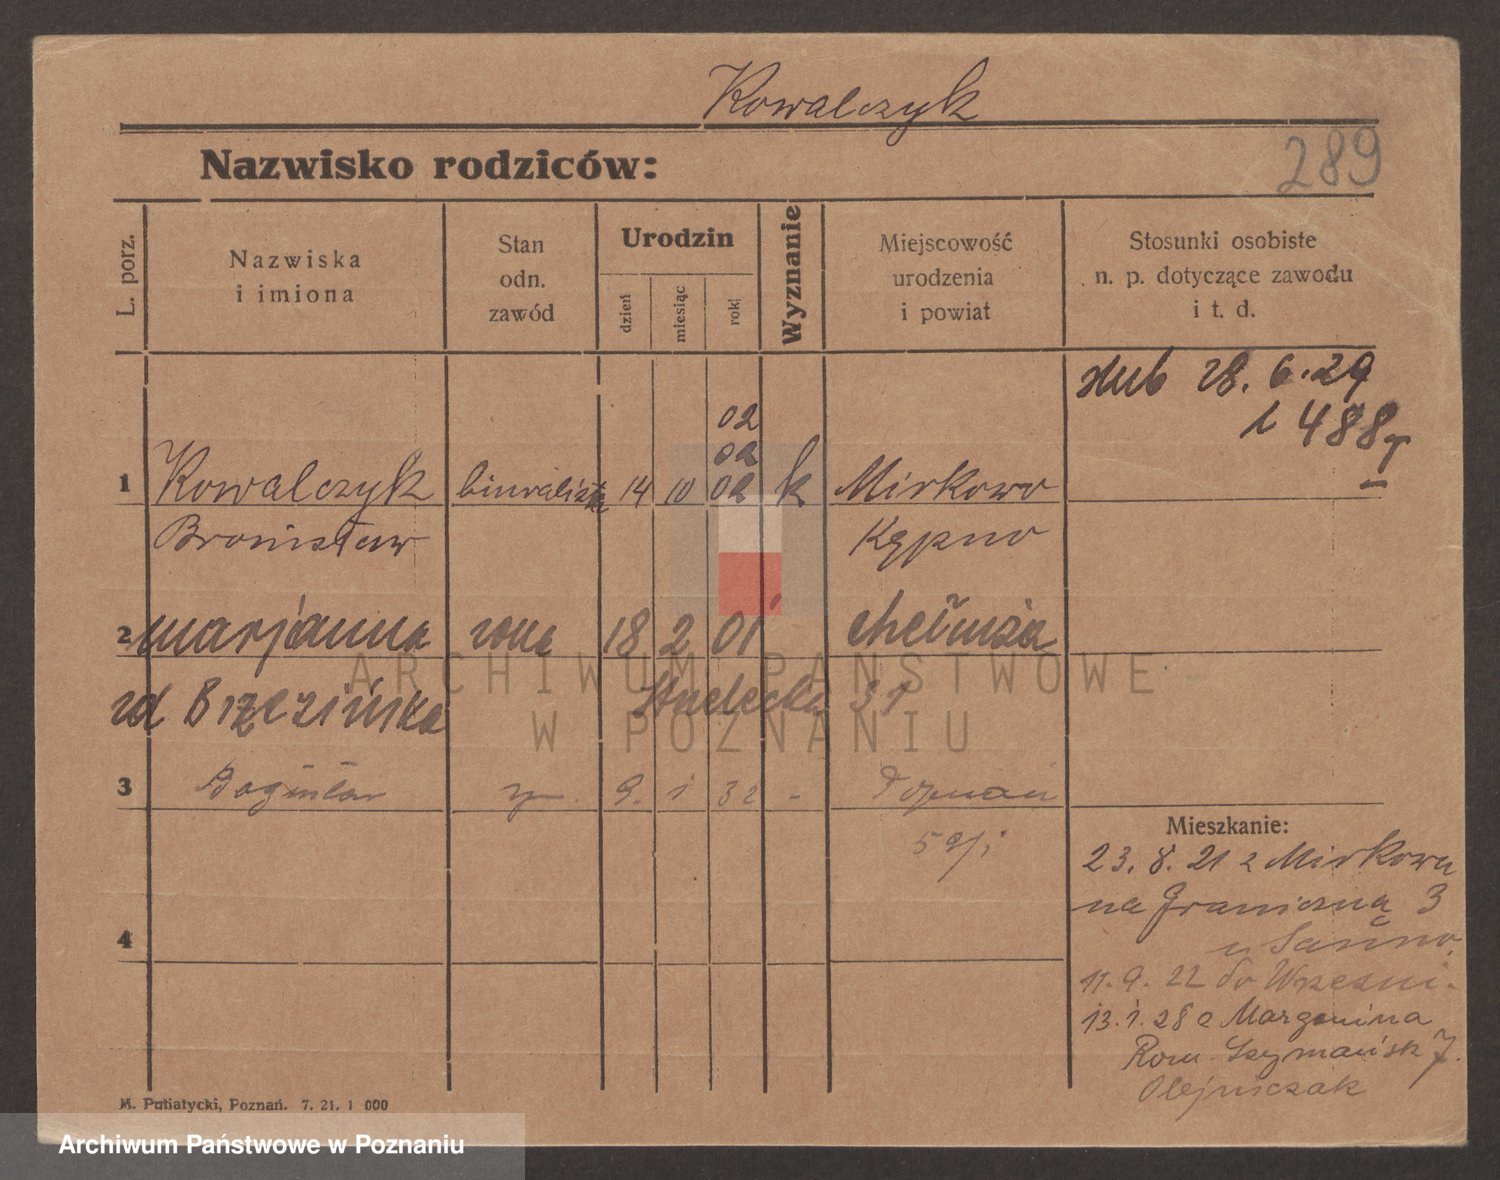 Kowalczyk
Nazwisko rodziców:
289
L. porz.
Nazwiska
i imiona
Stan
odn.
zawód
Urodzin
dzień
miesiąc
rok
Wyznanie
Miejscowość
urodzenia
i powiat
Stosunki osobiste
n. p. dotyczące zawodu
i t. d.
ślub 28. 6. 29
488
02
02
1 Kowalczyk biuralista 14 10 02 k Mirkowo
Bronisław Kępno
2 Marjanna żona 18 2 01 Chełmża
zd Brzezińska 31
3 Bogusław 9. 1 32 - Poznań
Mieszkanie:
23. 8. 21 z Mirkowa
na Graniczną 3
4
11. 9. 22 do Wrześni.
13. 1. 28 z Margonina
Rom. Szymańsk 7.
Olejniczak
M. Putiatycki, Poznań. 7. 21. 1 000
ARCHIWUM PAŃSTWOWE
W POZNANIU
Archiwum Państwowe w Poznaniu